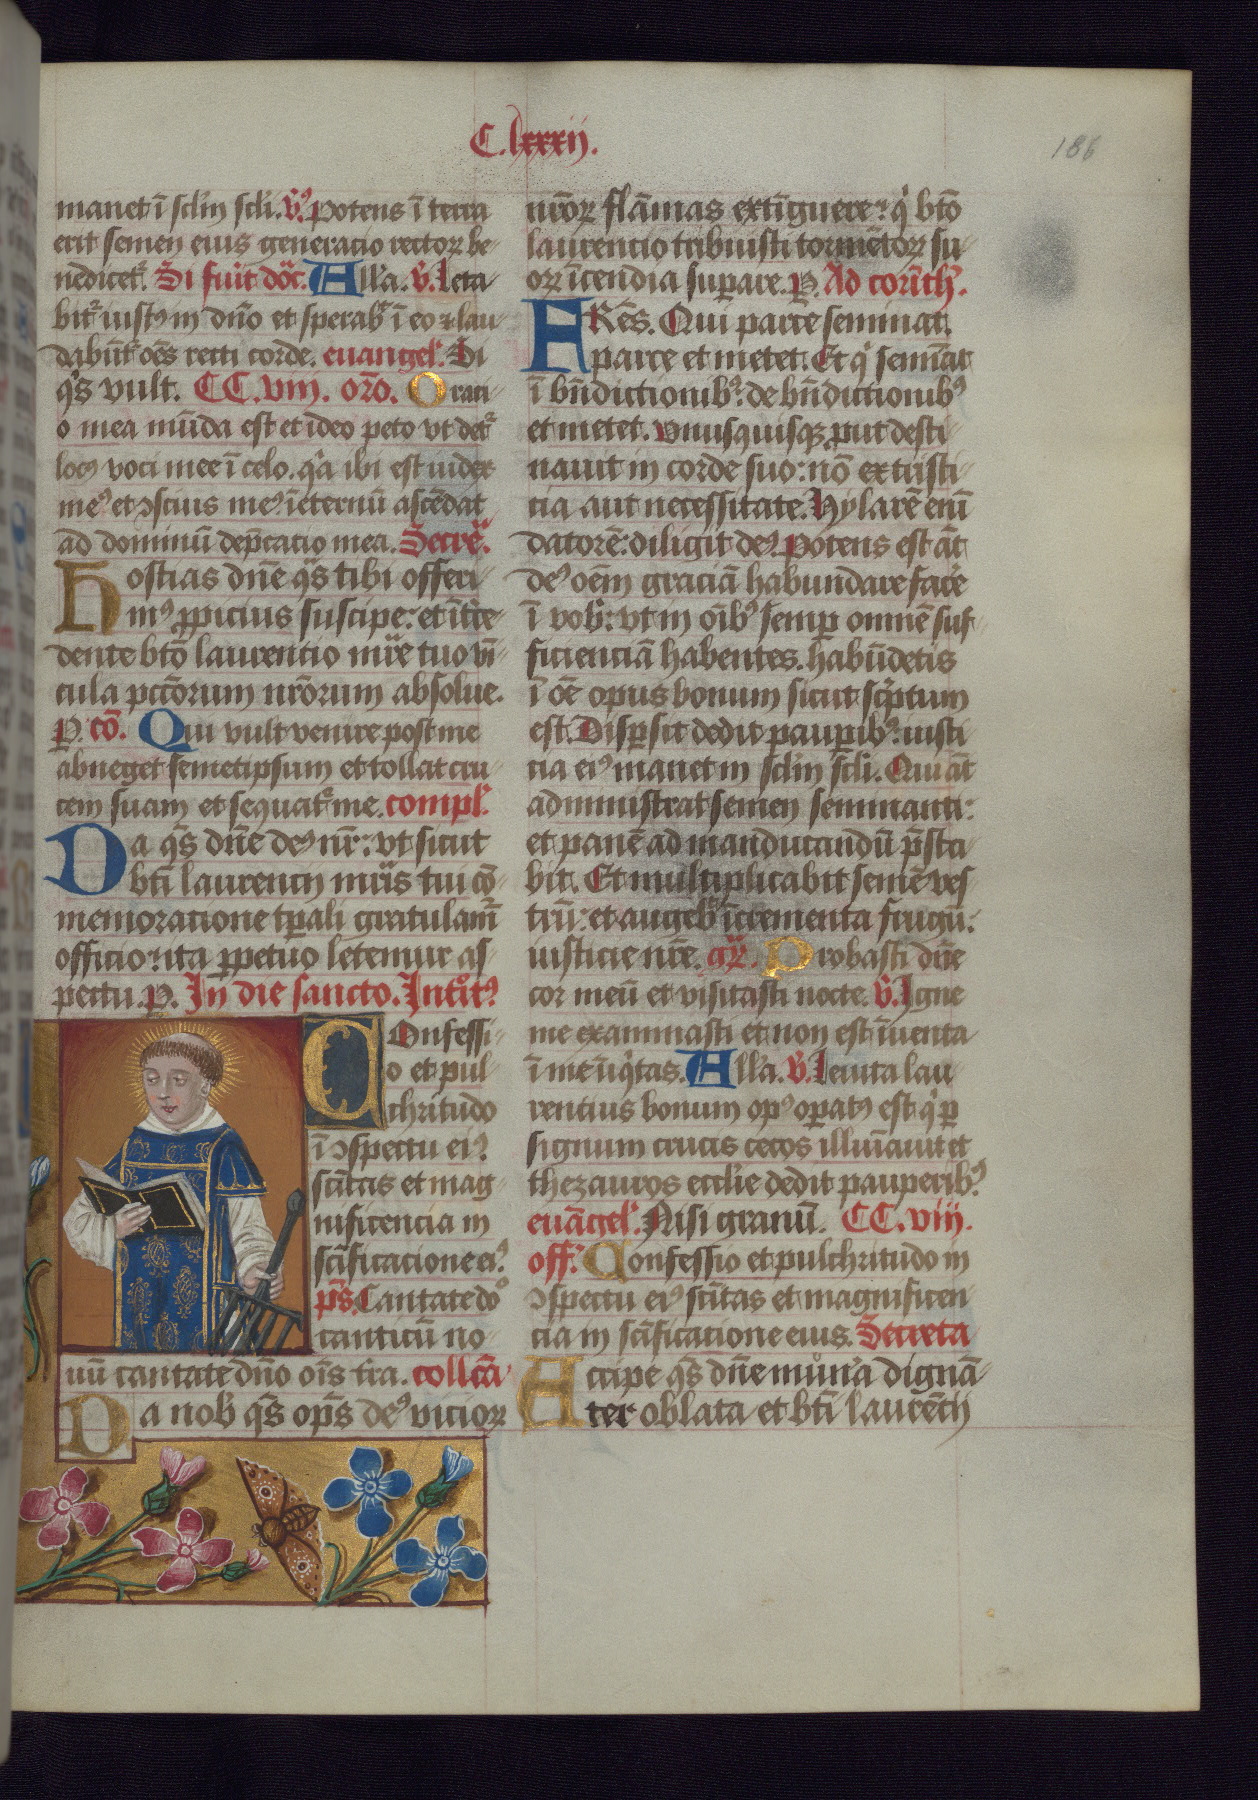 C.lxxxij.
186
manet ī sclm̄ scl'i. v᷎. Potens ī terra
erit semen eius generacio rectoꝝ be-
nedicet᷑. Si fuīt dōīc. All'a. v᷎. Leta-
bit᷑ iustꝰ in dn̄o et sperab᷑ ī eo ⁊ lau-
dabūt᷑ oēs recti corde. euangel᷑. Si
q's vult. CC.viii. oro. Oraci-
o mea mūda est et ideo peto vt det᷑
locꝰ voci mee ī celo. q'a ibi est iudex
meꝰ et ꝯscius meꝰ ī eternū ascēdat
ad dominū dep̄catio mea. Secre᷑.
Hostias dn̄e q̄s tibi offeri-
mꝰ ꝓpicius suscipe: et ītce-
dente bt̄o laurencio mr̄e tuo vī-
cula pcc̄orum nr̄orum absolue.
P. cō. Qui vult venire post me
abneget semetipsum et tollat cru-
cem suam et sequat᷑ me. compl᷑.
Da q̄s dn̄e deꝰ nr̄: vt sicut
bt̄i laurencij mr̄is tui cō-
memoracione tꝑali gratulam᷑
officio: ita ꝑpetuo letemur as-
pectu. P. In die sancto. Intr̄oitꝰ
Confessi-
o et pul-
chritudo
ī ꝯspectu eiꝰ
scītas et mag-
nificencia in
sc̄ificacione eiꝰ.
p̄s. Cantate dō
canticū no-
uū cantate dn̄o oīs tr̄a. collcā.
Da nob' q̄s op̄s deꝰ vicioꝝ
nr̄oꝝ flāmas extīguere: q' bt̄o
laurencio tribuisti tormētoꝝ su-
oꝝ īcendia suꝑare. P. Ad corinth᷑.
FRēs. Qui parce seminat,
parce et metet. Et q' semīat
ī bn̄dictionibꝰ: de bn̄dictionibꝰ
et metet. Vnusquisqꝫ put desti-
nauit in corde suo: nō ex tristi-
cia aut necessitate. Hylarē enī
datorē: diligit deꝰ. Potens est āt
deꝰ oēm graciā habundare face
ī vob': vt in oībꝰ semꝑ omnē suf-
ficienciā habentes. habūdetis
ī oē opus bonum sicut sc̄ptum
est. Disꝑsit dedit pauꝑibꝰ: iusti-
cia eiꝰ manet in sclm̄ scl'i. Qui āt
administrat semen seminanti:
et panē ad manducandū p̄sta-
bit. Et multiplicabit semē ves-
trū: et augeb᷑ īcrementa frugū:
iusticie nr̄e. gr᷑. Probasti dn̄e
cor meū et visitasti nocte. v᷎. Igne
me examinasti et non est īuenta
ī me īiq'tas. All'a. v᷎. Leuita lau-
rencius bonum opꝰ oꝑatꝰ est q' ꝑ
signum crucis cecos illuīauit et
thezauros eccl'ie dedit pauperibꝰ.
euāgel᷑. Nisi granū. CC.viij.
off᷑. Confessio et pulchritudo in
ꝯspectu eiꝰ scītas et magnificen-
cia in sc̄ificacione eius. Secreta
Accipe q̄s dn̄e mun̄a dignā-
ter oblata et bt̄i laurētij